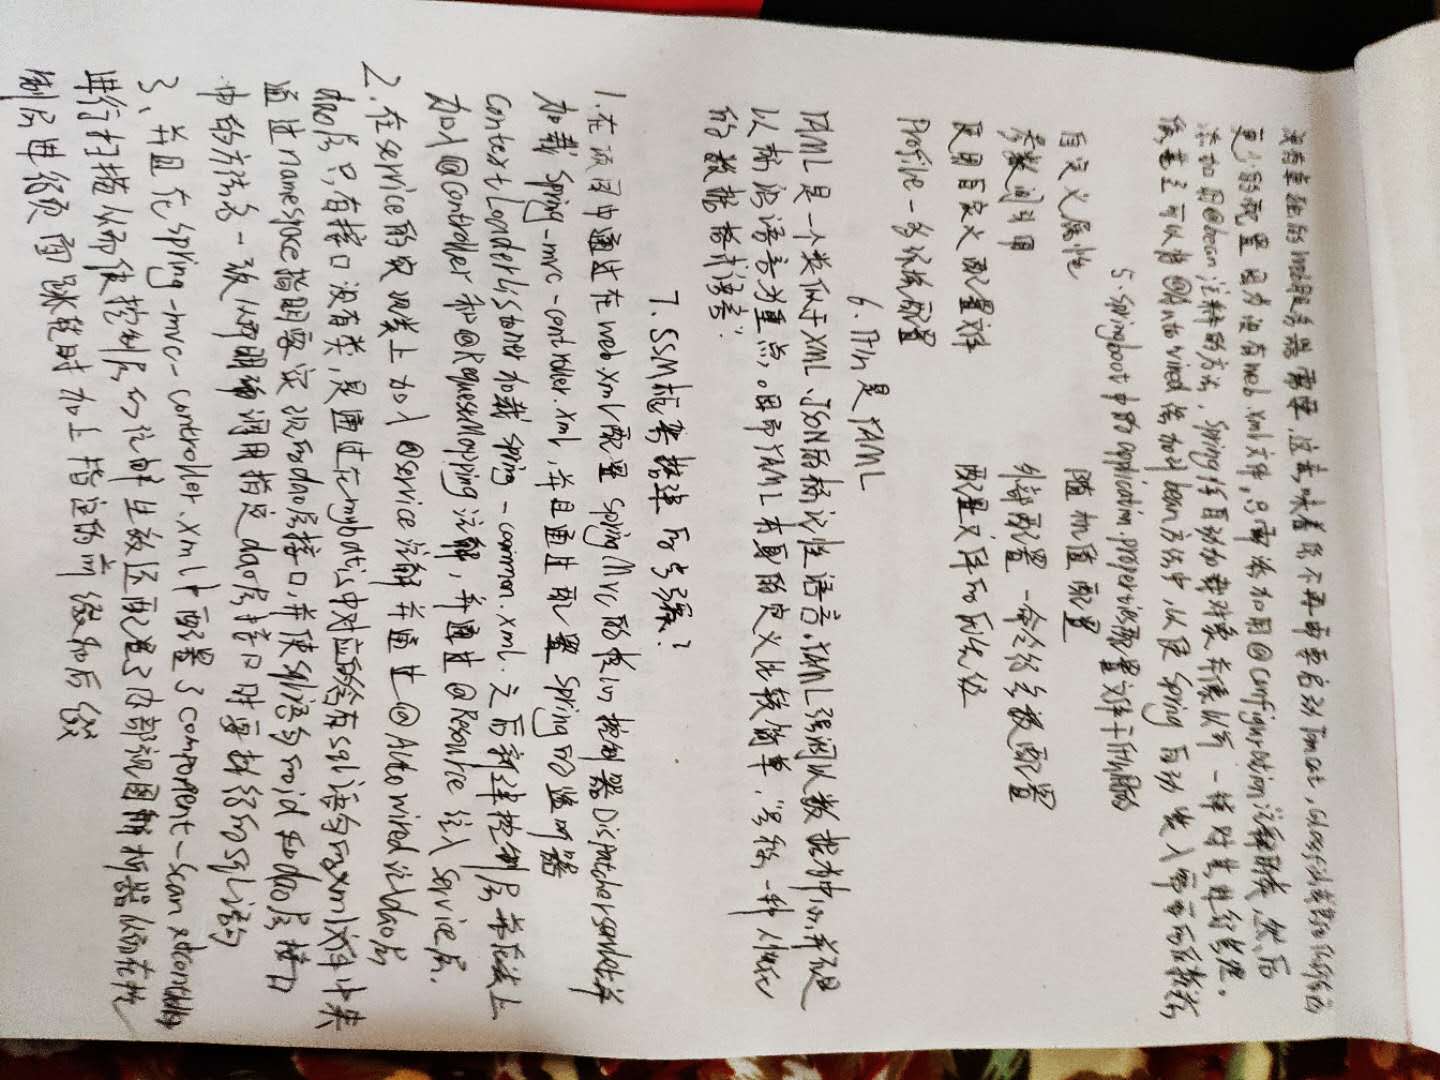 没有单独的web服务器需要,这意味着你不再需要启动Tomcat,Glassfish或其他任何东西
更少的配置 因为没有web.xml文件,只需添加用@Configuration注释的类,然后
添加用@bean注释的方法,Spring将自动加载对象并像以前一样对其进行管理。
您甚至可以将@Autowired添加到bean方法中,以使Spring自动装入需要的依赖
5.springboot中的application.properties配置文件
自定义属性 随机值配置
参数间引用 外部配置-命令行参数配置
使用自定义配置文件 配置文件的优先级
Profile-多环境配置
6.什么是YAML
YAML是一个类似于XML、JSON的标记性语言。YAML强调以数据为中心,并不是
以标识语言为重点,因而YAML本身的定义比较简单,号称"一种人性化
的数据格式语言"
7.SSM框架整合的步骤?
1.在项目中通过在web.xml配置SpringMvc的核心控制器DispatcherServlet并
加载Spring-mvc-controller.xml,并且通过配置Spring的监听器
ContextLoaderListener加载spring-common.xml.之后新建控制层并在类上
加入@Controller和@RequestMapping注解,并通过@Resource注入service层,
2.在service的实现类上加入@service注解并通过@Autowired注入dao层
dao层只有接口没有类,是通过在mybatis中对应的含有sql语句的xml文件中来
通过namespace指明要实现的dao层接口,并使sql语句的id和dao层接口
中的方法名一致从而明确调用指定dao层接口时要执行的sql语句
3、并且在spring-mvc-controller.xml中配置了component-scan对controller
进行扫描从而使控制层的注解生效还配置了内部视图解析器从而在控
制层页面跳转时加上指定的前缀和后缀